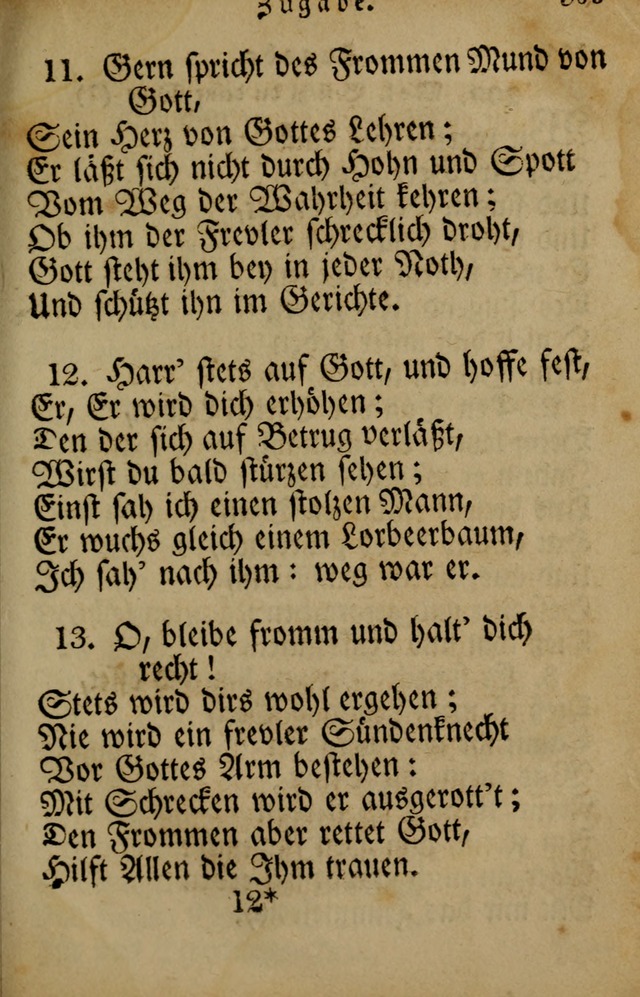 Zugabe.
11. Gern spricht des Frommen Mund von
Gott,
Sein Herz von Gottes Lehren;
Er läßt sich nicht durch Hohn und Spott
Vom Weg der Wahrheit kehren;
Ob ihm der Frevler schrecklich droht,
Gott steht ihm bey in jeder Noth,
Und schützt ihn im Gerichte.
12. Harr' stets auf Gott, und hoffe fest,
Er, Er wird dich erhöhen;
Den der sich auf Betrug verläßt,
Wirst du bald stürzen sehen;
Einst sah ich einen stolzen Mann,
Er wuchs gleich einem Lorbeerbaum,
Ich sah' nach ihm: weg war er.
13. O, bleibe fromm und halt' dich
recht!
Stets wird dirs wohl ergehen;
Nie wird ein frevler Sündenknecht
Vor Gottes Arm bestehen:
Mit Schrecken wird er ausgerott't;
Den Frommen aber rettet Gott,
Hilft Allen die Ihm trauen.
12*